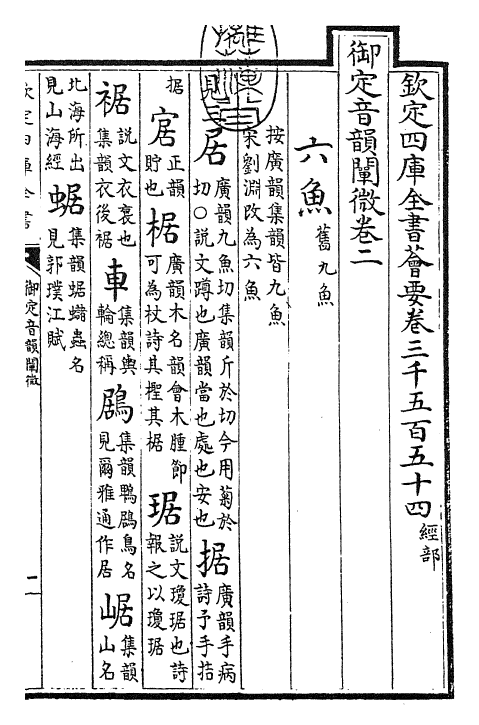 欽定四庫全書薈要卷三千五百五十四 經部
御定音韻闡微卷二
六魚 舊九魚
按廣韻集韻皆九魚
宋劉淵改為六魚
見三居 廣韻九魚切集韻斤於切今用菊於切○説文蹲也廣韻當也處也安也 据 廣韻手病詩予手拮
据 㝒 正韻貯也 椐 廣韻木名韻會木腫節可為杖詩其檉其椐 琚 説文瓊琚也詩報之以瓊琚
裾 説文衣裦也集韻衣後裾 車 集韻輿輪總稱 鶋 集韻鴨鶋鳥名見爾雅通作居 崌 集韻山名
北海所出見山海經 蜛 集韻蜛蝫蟲名見郭璞江賦
欽定四庫全書 御定音韻闡微 二